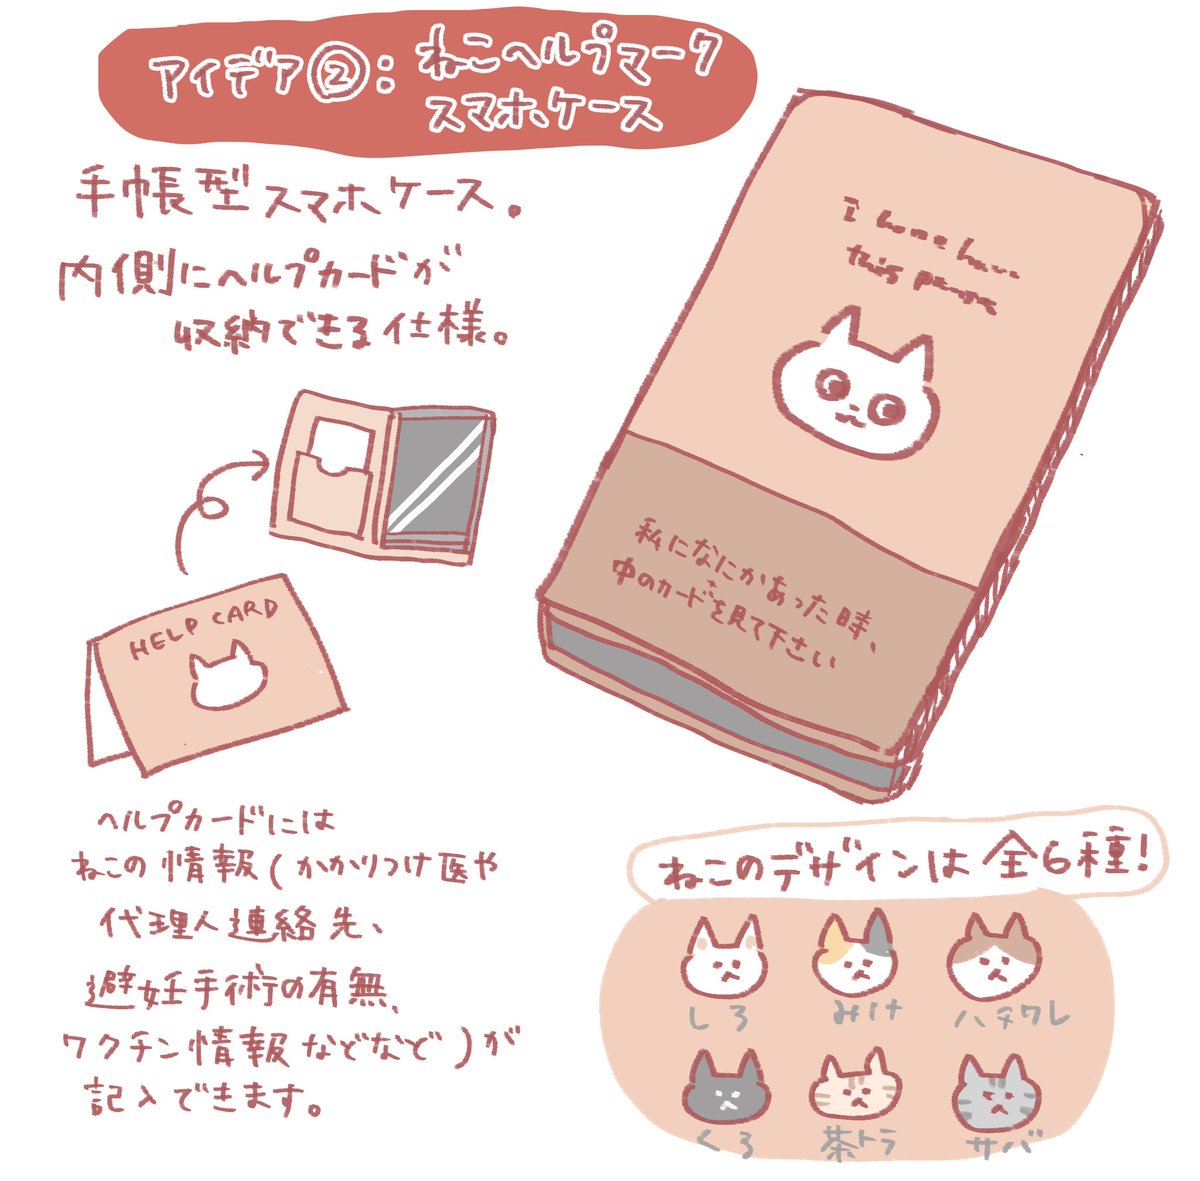 アイデア②:ねこヘルプマーク
スマホケース
手帳型スマホケース。
内側にヘルプカードが
収納できる仕様。
I have
this
私になにかあった時、
中のカードを見て下さい
HELP CARD
ヘルプカードには
ねこの情報(かかりつけ医や
代理人連絡先、
避妊手術の有無、
ワクチン情報などなど)が
記入できます。
ねこのデザインは全6種!
しろ
みけ
ハチワレ
くろ
茶トラ
サバ